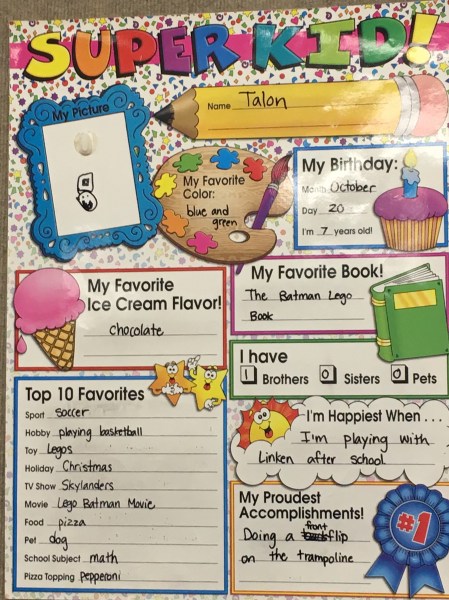 SUPER KID!
My Picture
Name Talon
My Favorite
Color:
blue and
green
My Birthday:
Month October
Day 20
I'm 7 years old!
My Favorite
Ice Cream Flavor!
Chocolate
My Favorite Book!
The Batman Lego
Book
I have
1 Brothers 0 Sisters 0 Pets
Top 10 Favorites
Sport soccer
Hobby playing basketball
Toy Legos
Holiday Christmas
TV Show Skylanders
Movie Lego Batman Movie
Food pizza
Pet dog
School Subject math
Pizza Topping pepperoni
I'm Happiest When . . .
I'm playing with
Linken after school
My Proudest
Accomplishments!
Doing a front flip
on the trampoline
#1